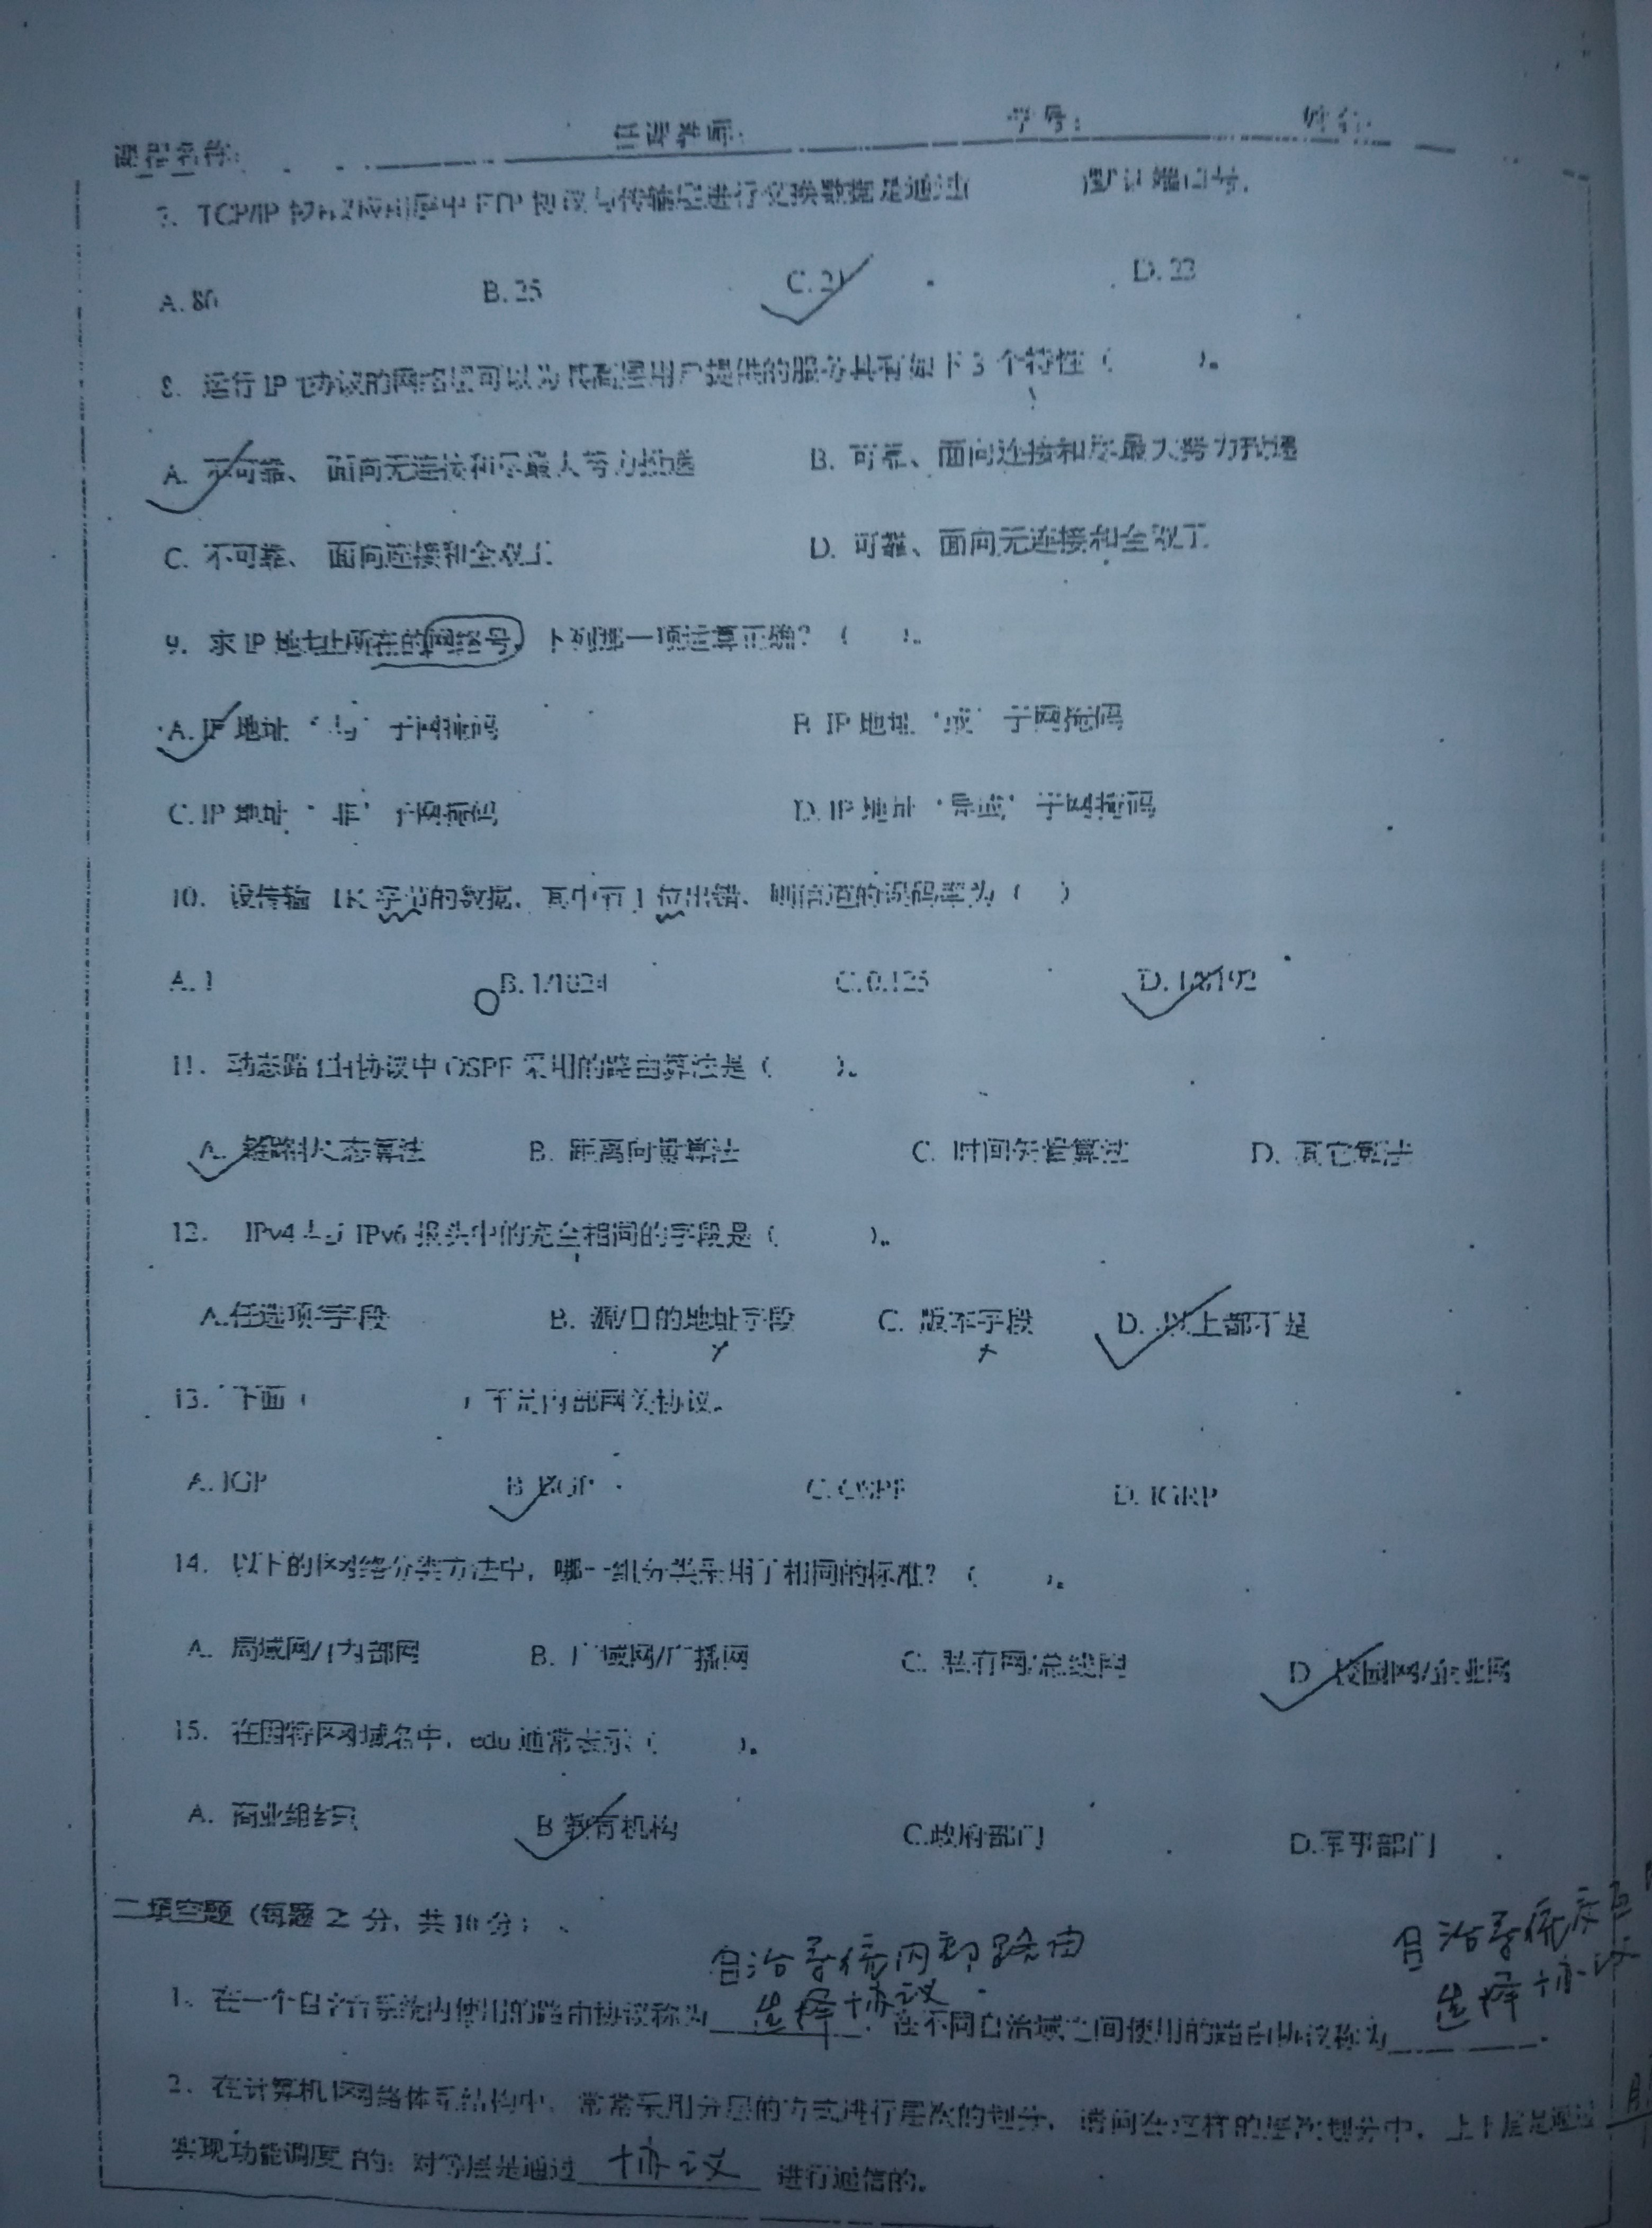 课程名称: 任课教师: 学号: 姓名:
7. TCP/IP 协议应用层中 FTP 协议与传输层进行交换数据是通过( 默认端口号.
A. 80 B. 25 C. 21 D. 23
8. 运行 IP 协议的网络层可以为其高层用户提供的服务具有如下 3 个特性( )。
A. 不可靠、 面向无连接和尽最大努力投递 B. 可靠、面向连接和尽最大努力投递
C. 不可靠、 面向连接和全双工 D. 可靠、面向无连接和全双工
9. 求 IP 地址所在的网络号, 下列哪一项运算正确? ( )。
A. IP 地址 ‘与’ 子网掩码 B IP 地址 ‘或’ 子网掩码
C. IP 地址 ‘非’ 子网掩码 D. IP 地址 ‘异或’ 子网掩码
10. 设传输 1K 字节的数据, 其中有 1 位出错, 则信道的误码率为( )
A. 1 B. 1/1024 C. 0.125 D. 1/8192
11. 动态路由协议中 OSPF 采用的路由算法是( )。
A. 链路状态算法 B. 距离向量算法 C. 时间矢量算法 D. 其它算法
12. IPv4 与 IPv6 报头中的完全相同的字段是( )。
A.任选项字段 B. 源/目的地址字段 C. 版本字段 D. 以上都不是
13. 下面( ) 不是内部网关协议。
A. IGP B BGP C. OSPF D. IGRP
14. 以下的网络分类方法中, 哪一组分类采用了相同的标准? ( )。
A. 局域网/内部网 B. 广域网/广播网 C. 私有网/总线网 D 校园网/企业网
15. 在因特网域名中, edu 通常表示( )。
A. 商业组织 B 教育机构 C.政府部门 D.军事部门
二 填空题 (每题 2 分, 共 10 分)
自治系统内部路由
选择协议
自治系统
选择协议
1、在一个自治系统内使用的路由协议称为 , 在不同自治域之间使用的路由协议称为 .
2、在计算机网络体系结构中, 常常采用分层的方式进行层次的划分, 请问在这样的层次划分中, 上下层是通过
实现功能调度的; 对等层是通过 协议 进行通信的。